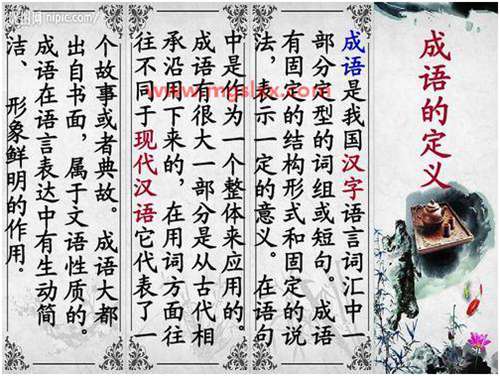 成语的定义
成语是我国汉字语言词汇中一
部分定型的词组或短句。成语
有固定的结构形式和固定的说
法，表示一定的意义。在语句
中是作为一个整体来应用的。
成语有很大一部分是从古代相
承沿用下来的，在用词方面往
往不同于现代汉语它代表了一
个故事或者典故。成语大都
出自书面，属于文语性质的。
成语在语言表达中有生动简
洁、形象鲜明的作用。
图网 nipic.com